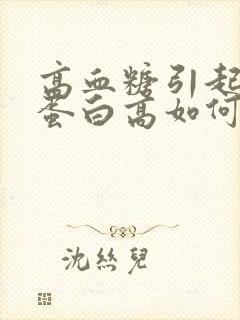 高血糖引起
蛋白高如何
沈丝儿